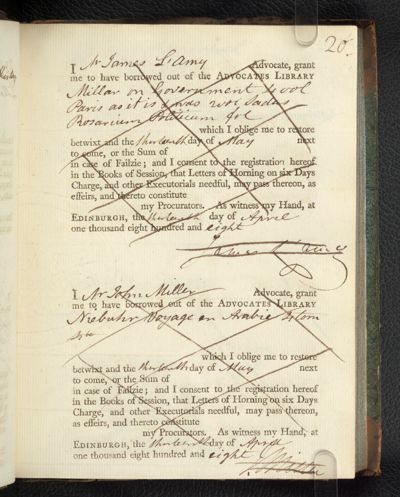 20.
I Mr James L'Amy Advocate, grant
me to have borrowed out of the ADVOCATES LIBRARY
Millar on Government 4 vol
Paris as it is & was 2 vol Sadus
Rosarium Politicum fol
which I oblige me to restore
betwixt and the thirteenth day of May next
to come, or the Sum of
in case of Failzie; and I consent to the registration hereof
in the Books of Session, that Letters of Horning on six Days
Charge, and other Executorials needful, may pass thereon, as
effeirs, and thereto constitute
my Procurators. As witness my Hand, at
EDINBURGH, the thirteenth day of April
one thousand eight hundred and eight
James L'Amy
I Mr John Miller Advocate, grant
me to have borrowed out of the ADVOCATES LIBRARY
Niebuhr Voyage en Arabie 2 tom
4to
which I oblige me to restore
betwixt and the thirteenth day of May next
to come, or the Sum of
in case of Failzie; and I consent to the registration hereof
in the Books of Session, that Letters of Horning on six Days
Charge, and other Executorials needful, may pass thereon,
as effeirs, and thereto constitute
my Procurators. As witness my Hand, at
EDINBURGH, the thirteenth day of April
one thousand eight hundred and eight